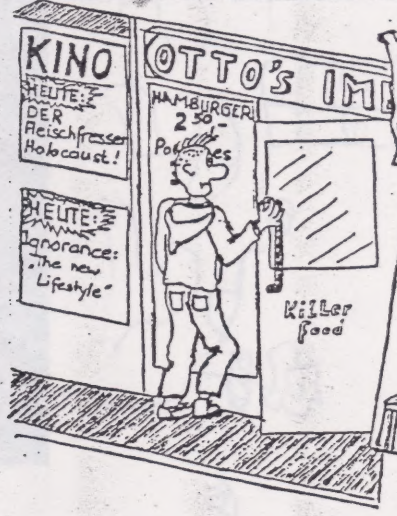 KINO
HEUTE:
DER
Fleischfresser
Holocaust!
HEUTE:
Ignorance:
"The new
Lifestyle"
OTTO's IM
HAMBURGER
2 50-
Po es
Killer
food